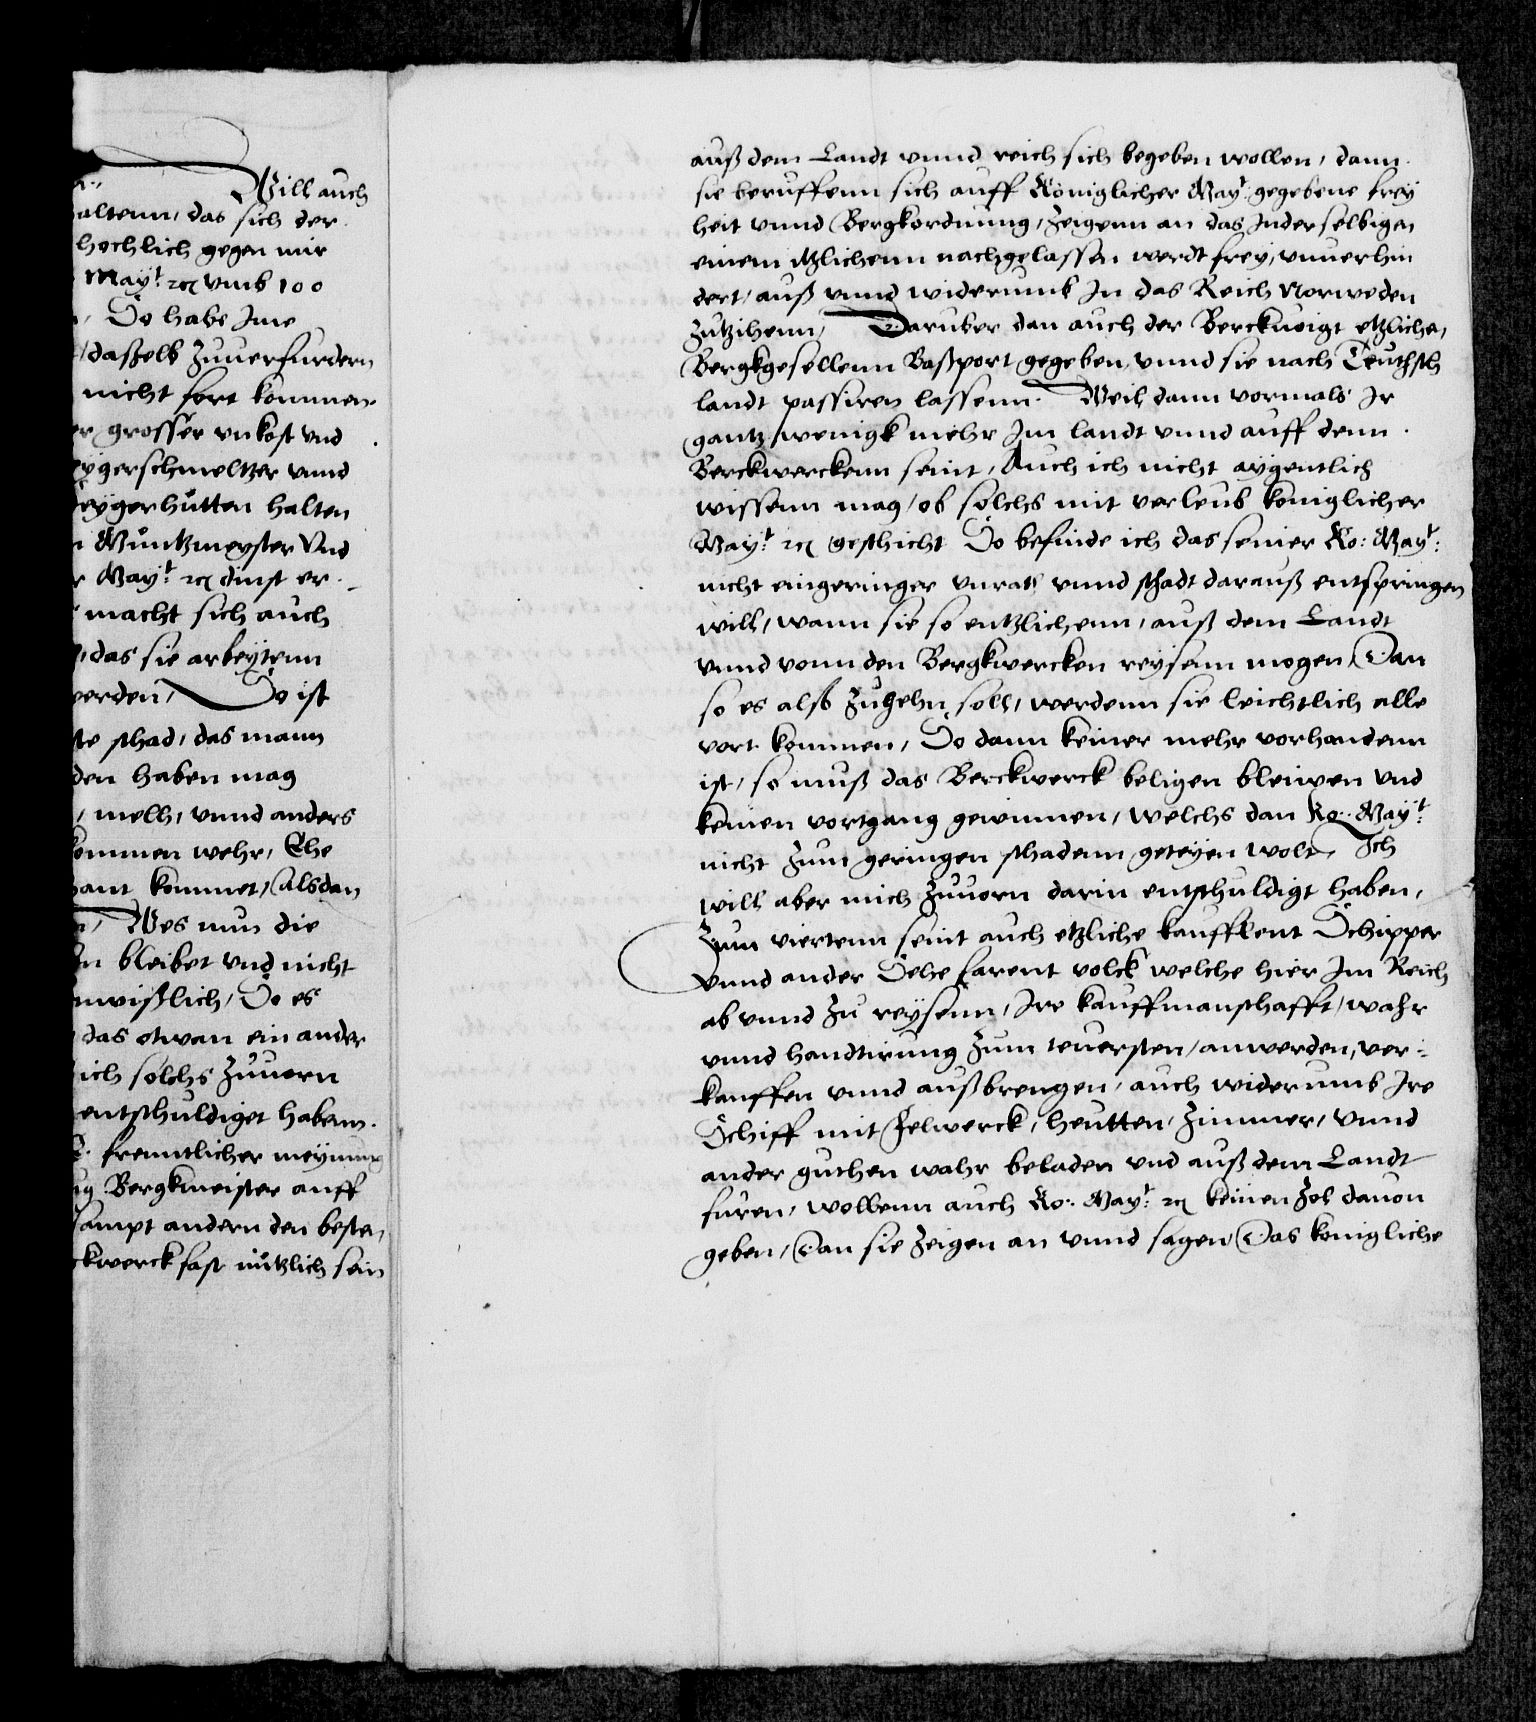 Will auch
altenn, das sich der
hochlich gegen mir
May:t etc vmb 100
So habe Ime
daßelb Zuuerfurdern
nicht fort kommen
er grosser vnkost vnd
eygerschmeltzer vnnd
eygerhutten halten
Muntzmeyster Vnd
r May:t etc dinst er
macht sich auch
das sie arbeytenn
werden, So ist
te schad, das mann
den haben mag
, mell, vnnd anders
kommen wehr, Ehe
hant kommet, Alsdan
Wes nun die
In bleibet vnd nicht
nwißlich, So es
das etwan ein ander
ich solchs Zuuorn
entschuldiget habenn.
E. freuntlicher meynung
ng Bergkmeister auff
sampt andern den beste,
ckwerck fast nutzlich sein
auß dem Landt vnnd reich sich begeben wollen, dann
sie beruffenn sich auff Königlicher May:t gegebene frey
heit vnnd Bergkordnung, Zeigenn an das Inderselbigen
einem itzlichenn nachgelassen werdt frey, vnuerhin
dert, auß vnnd widerumb In das Reich Norweden
Zutzihenn, Daruber dan auch der Berckuoigt etzliche,
Bergkgesellenn Baßport gegeben, vnnd sie nach Teuthsch
landt passiren lassenn. Weil dann vormals Ir
gantz wenigk mehr Im landt vnnd auff denn
Berckwerckenn seint, Auch ich nicht aygentlich
wissenn mag, ob solchs mit verleub koniglicher
May:t etc geschicht So befinde ich das seiner Ko: May:t
nicht eingeringer vnrath vnnd schadt darauß entspringen
will, wann sie so entzlichenn, auß dem Landt
vnnd vonn den Bergkwercken reysenn mogen, Dan
so es alß Zugehn soll, werdenn sie leichtlich alle
vort kommen, So dann keiner mehr vorhandenn
ist, so muß das Berckwerck beligen bleiwen vnd
keinen vortgang gewinnen, welchs dan Ko: May:t
nicht Zum geringen schadenn geteyen wolt, Ich
will aber mich Zuuorn darin entschuldigt haben,
Zum viertenn seint auch etzliche kauffleut Schipper
vnnd ander Sehe farent volck welche hier Im Reich
ab vnnd Zu reysenn, Ire kauffmanschafft, wahr
vnnd handtirung Zum teuersten, anwerden, ver:
kauffen vnnd außbrengen, auch widerumb Ire
Schiff mit Felwerck, heutten, Zimmer, vnnd
ander guthen wahr beladen vnd auß dem Landt
furen, wollenn auch Ko: May:t etc keinen Zol dauon
geben, Dan sie Zeigen an vnnd sagen Das konigliche